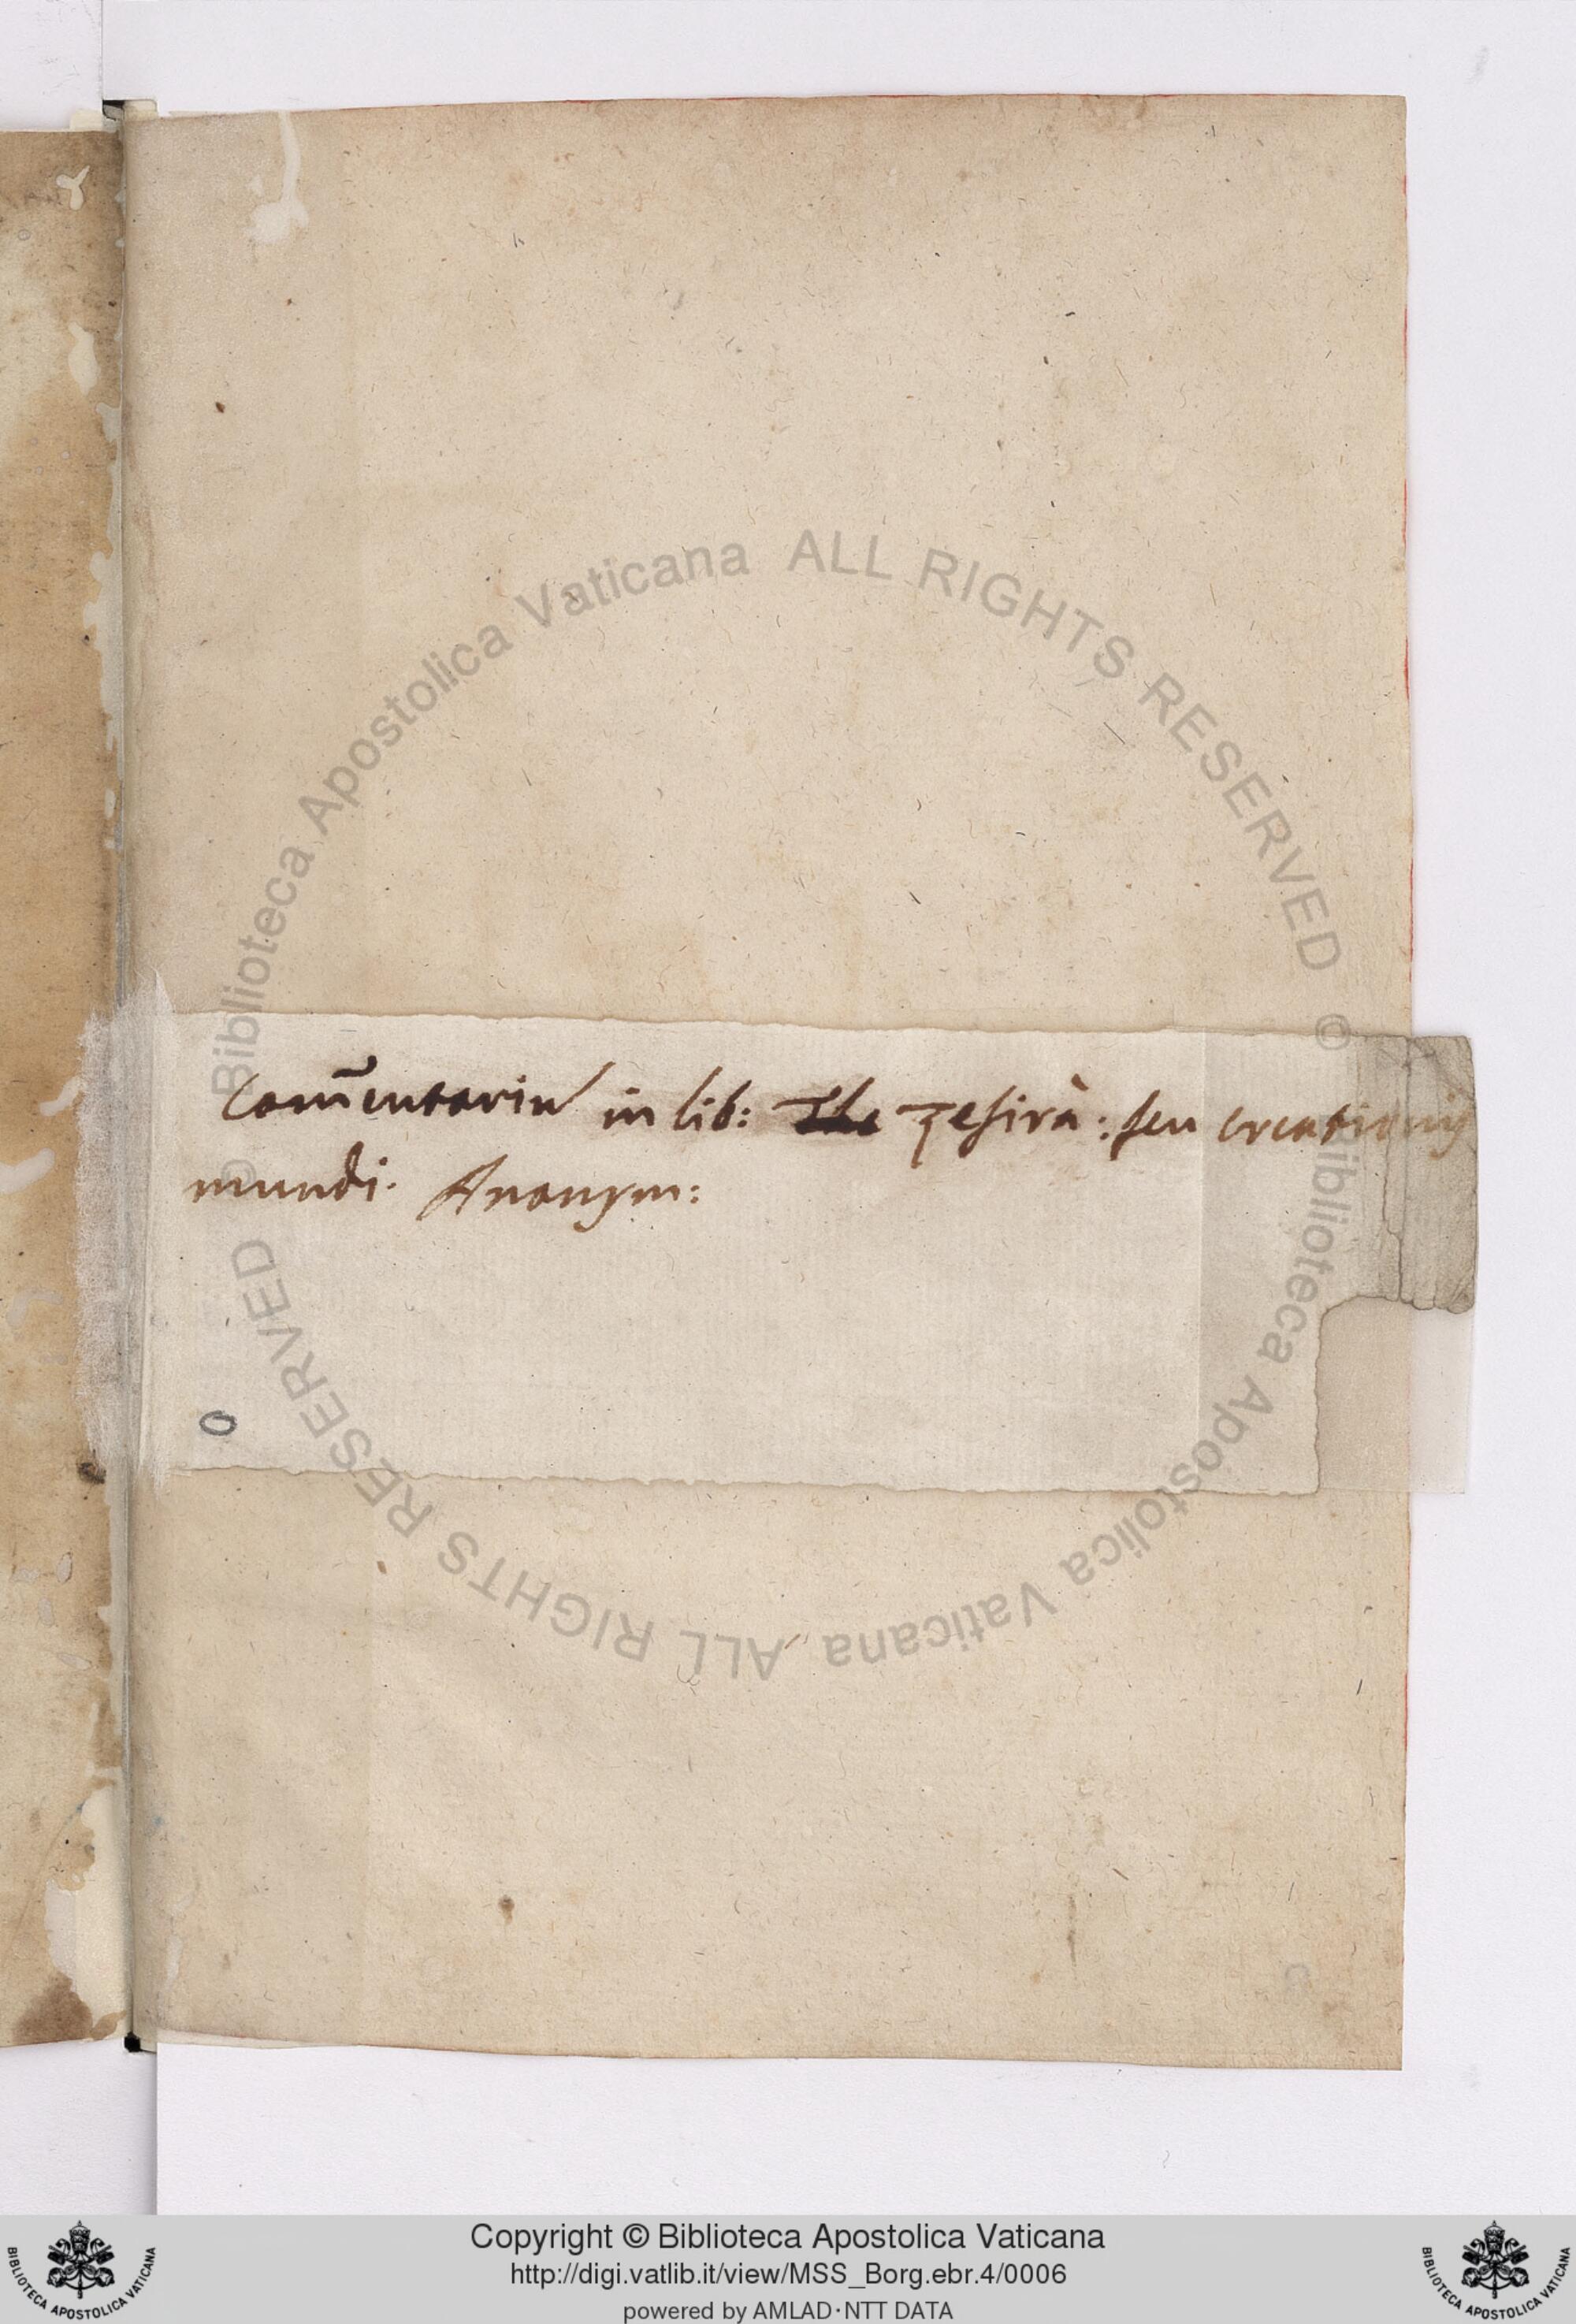 Com̃entariu in lib: zesirà: seu creationis
mundi. Anonym:
0
© Biblioteca Apostolica Vaticana ALL RIGHTS RESERVED
© Biblioteca Apostolica Vaticana ALL RIGHTS RESERVED
Copyright © Biblioteca Apostolica Vaticana
http://digi.vatlib.it/view/MSS_Borg.ebr.4/0006
powered by AMLAD·NTT DATA
BIBLIOTECA APOSTOLICA VATICANA
BIBLIOTECA APOSTOLICA VATICANA